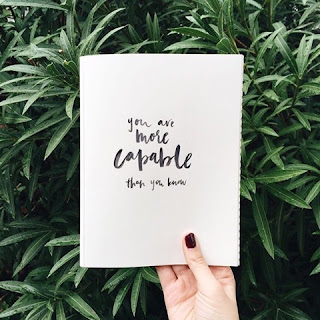 you are
more
capable
than you know